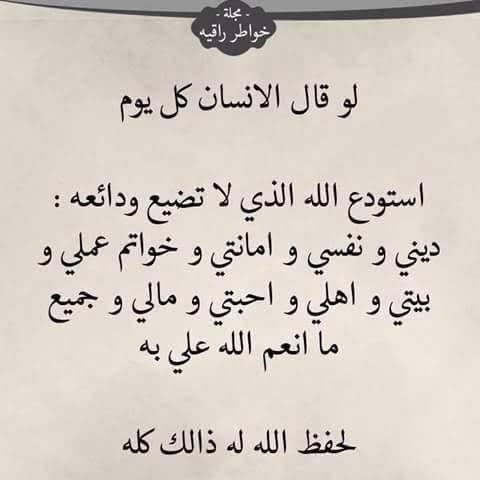 - مجلة -
خواطر راقيه
لو قال الانسان كل يوم
استودع الله الذي لا تضيع ودائعه :
ديني و نفسي و امانتي و خواتم عملي و
بيتي و اهلي و احبتي و مالي و جميع
ما انعم الله علي به
لحفظ الله له ذالك كله